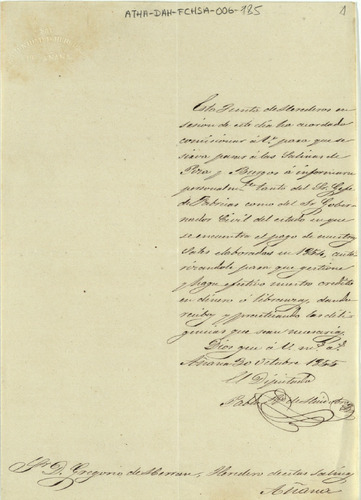 ATHA-DAH-FCHSA-006-135
1
Esta Junta de Herederos en
sesion de este dia ha acordado
comisionar á V. para que se
sirva pasar á las Salinas de
Poza y Burgos á informarse
personalmte tanto del Sr. Gefe
de Fabricas como del Sr Gober-
nador Civil del estado en que
se encuentra el pago de nuestras
Sales elaboradas en 1854, auto-
rizandole para que gestione
y haga efectivo nuestro credito
en dinero ó libranzas, dando
recibos y practicando las dili-
gencias que sean necesarias.
Dios gue á V. ms. as.
Añana 20 Octubre 1855
El Diputado
Pablo
Sr. D. Gregorio de Herran, Heredero de estas Salinas
Añana